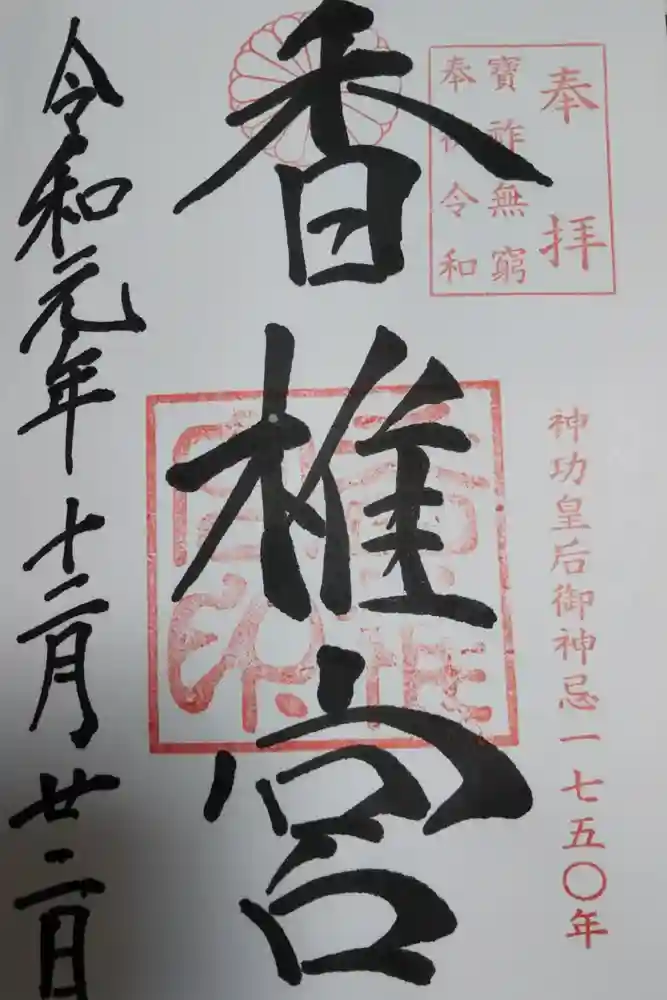 奉拝
寶祚無窮
奉祝令和
神功皇后御神忌一七五〇年
香椎宮
香椎宮印
令和元年十二月廿二日